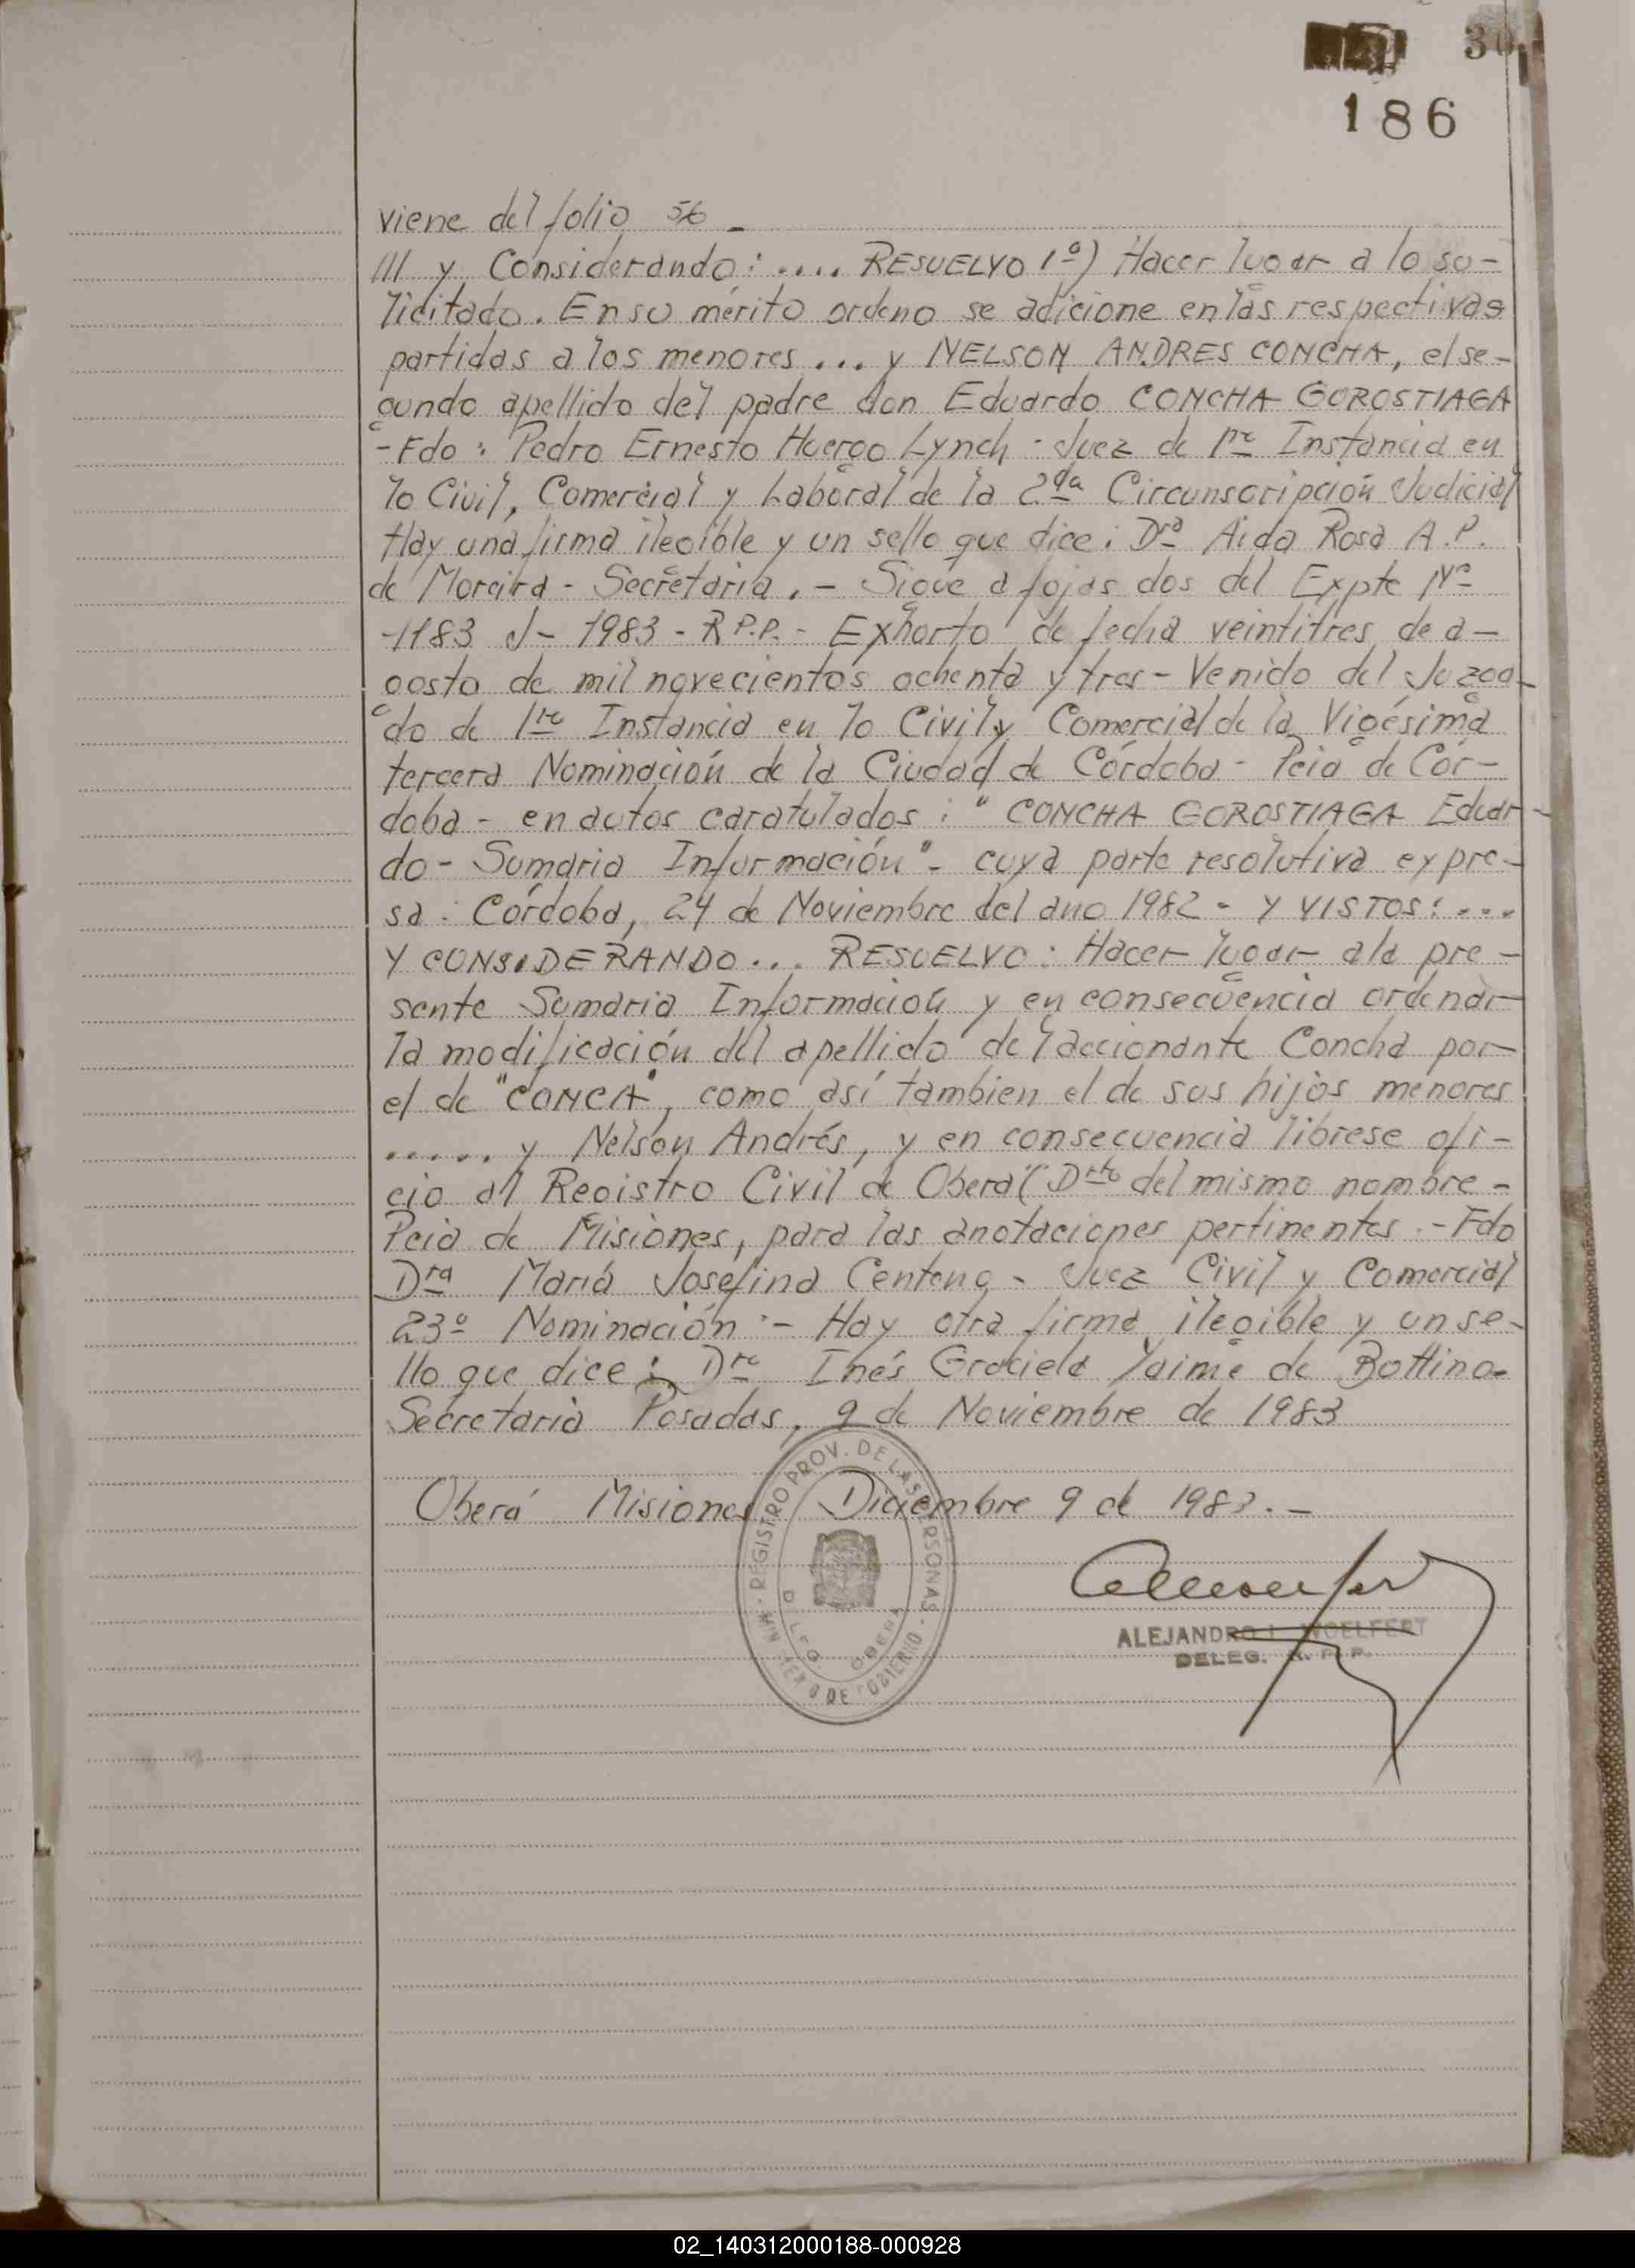 30
186
viene del folio 56 -
/// y Considerando: .... RESUELVO 1º) Hacer lugar a lo so-
licitado. En su mérito ordeno se adicione en las respectivas
partidas a los menores ... y NELSON ANDRES CONCHA, el se-
gundo apellido del padre don Eduardo CONCHA GOROSTIAGA
- Fdo: Pedro Ernesto Huergo Lynch - Juez de 1ra Instancia en
lo Civil, Comercial y Laboral de la 2da Circunscripción Judicial
Hay una firma ilegible y un sello que dice: Dra Aida Rosa A.P.
de Moreira - Secretaria. - Sigue a fojas dos del Expte Nº
1183 J - 1983 - R.P.P. - Exhorto de fecha veintitres de a-
gosto de mil novecientos ochenta y tres - Venido del Juzga-
do de 1ra Instancia en lo Civil y Comercial de la Vigésima
tercera Nominación de la Ciudad de Córdoba - Pcia de Cór-
doba - en autos caratulados: "CONCHA GOROSTIAGA Eduar-
do - Sumaria Información" - cuya parte resolutiva expre-
sa: Córdoba, 24 de Noviembre del año 1982 - Y VISTOS: ...
Y CONSIDERANDO... RESUELVO: Hacer lugar a la pre-
sente Sumaria Información y en consecuencia ordenar
la modificación del apellido del accionante Concha por
el de "CONCA", como así tambien el de sus hijos menores
...... y Nelson Andrés, y en consecuencia librese ofi-
cio al Registro Civil de Oberá (Dpto del mismo nombre -
Pcia de Misiones, para las anotaciones pertinentes. - Fdo
Dra María Josefina Centeno - Juez Civil y Comercial
23º Nominación - Hay otra firma ilegible y un se-
llo que dice: Dra Inés Graciela Yaime de Bottino -
Secretaria Posadas, 9 de Noviembre de 1983
Oberá Misiones Diciembre 9 de 1983. -
REGISTRO PROV. DE LAS PERSONAS - MINISTERIO DE GOBIERNO
DELEG. OBERA
ALEJANDRO I. WOELFERT
DELEG. R. P. P.
02_140312000188-000928